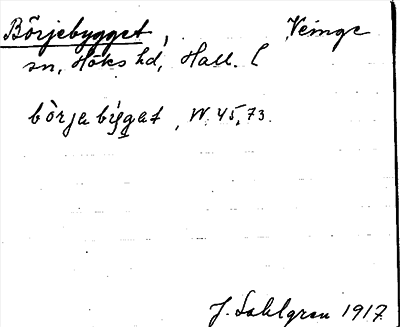 Börjebygget, Veinge
sn, Höks hd, Hall. l
börjabýgat, W. 45, 73.
J. Sahlgren 1917